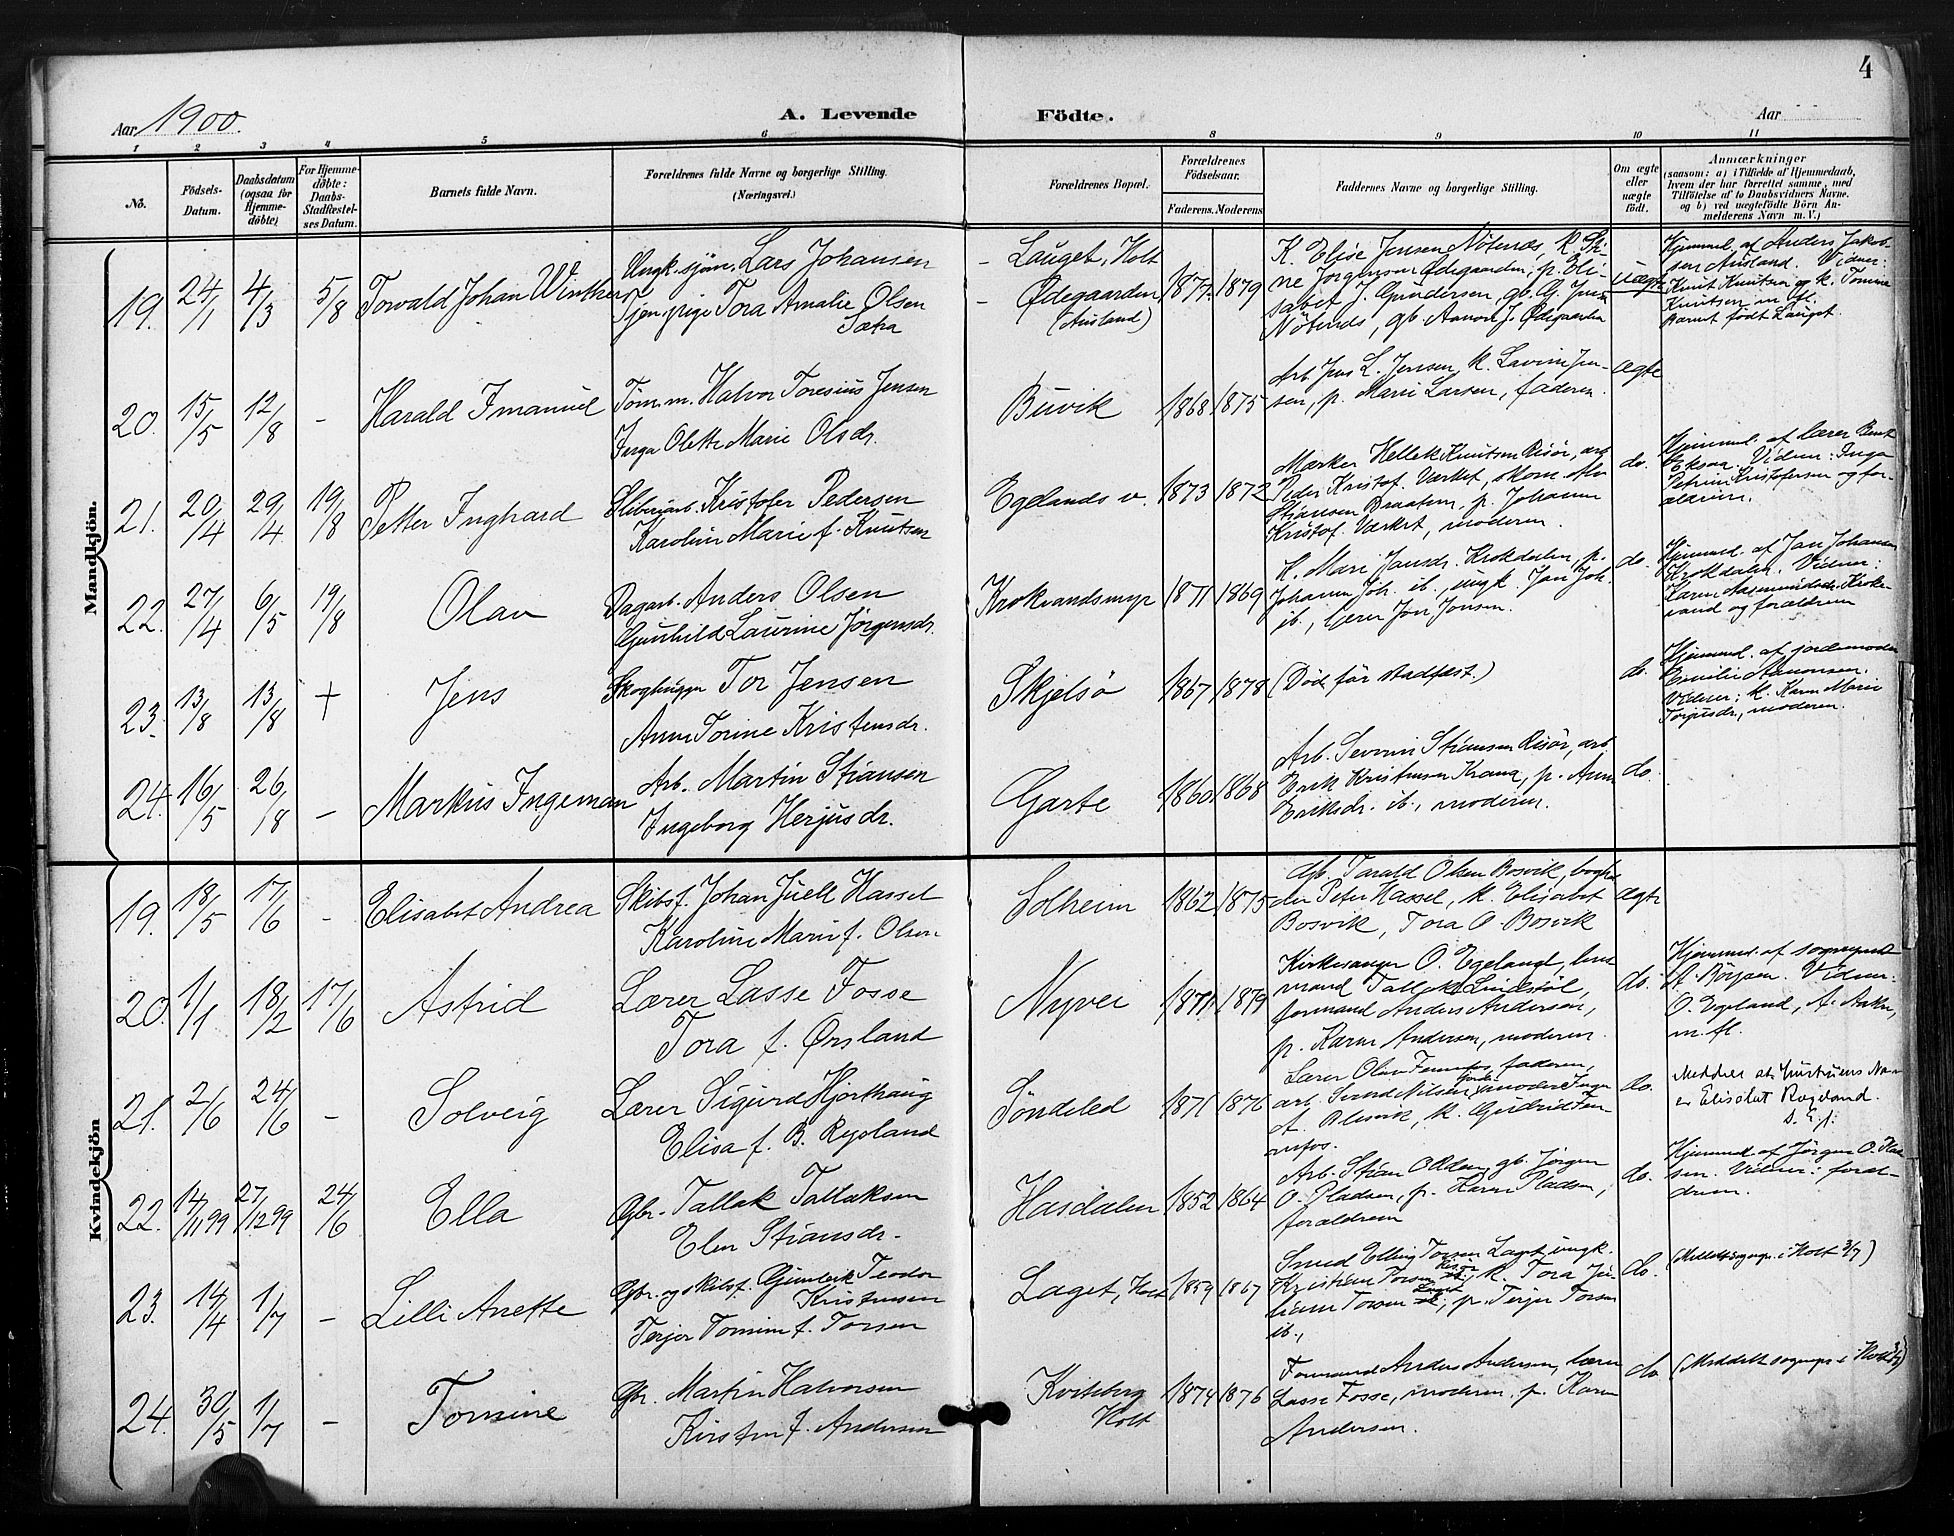 4
Aar 1900.
A. Levende Födte.
Aar
1 2 3 4 5 6 8 9 10 11
No.
Födsels-Datum.
Daabsdatum (ogsaa for Hjemme-döbte).
For Hjemme-döbte: Daabs-Stadfæstel-ses Datum.
Barnets fulde Navn.
Forældrenes fulde Navne og borgerlige Stilling.
(Næringsvei.)
Forældrenes Bopæl.
Forældrenes Födselsaar.
Faderens. Moderens
Faddernes Navne og borgerlige Stilling.
Om ægte eller uægte födt.
Anmærkninger
(saasom: a) i Tilfælde af Hjemmedaab,
hvem der har forrettet samme, med
Tilföielse af to Daabsvidners Navne.
og b) ved uægtefödte Börn An-
melderens Navn m. V.)
Mandkjön.
19. 24/1 4/3 5/8 Torvald Johan Winther
Ungk. sjöm. Lars Johansen
Tjen. pige Tora Amalie Olsen
Sætra
- Lauget, Holt
- Ødegaarden
(Ausland)
1877 1879
K. Elise Jensen Nötenes, k. Sti-
ne Jörgensen Ødegaarden, p. Eli-
sabet J. Gundersen, gb. G. Jens.
Nötenes, gb. Aanon J. Ødegaarden
uægte
Hjemmed. af Anders Jakob-
sen Ausland. Vidner:
Knut Knutsen og k. Tomine
Knutsen m. fl.
Barnet födt Lauget.
20. 15/5 12/8 - Harald Imanuel
Töm.m. Halvor Toresius Jensen
Inga Olette Marie Olsdr.
Buvik
1868 1875
Arb. Jens L. Jensen, k. Lavine Jen-
sen, p. Marie Larsen, faderen.
ægte
21. 20/4 29/4 19/8 Petter Inghard
Sliberiarb. Kristofer Pedersen
Karoline Marie f. Knutsen
Egelands v.
1873 1872
Marker Hellek Knutsen Risör, arb.
Peder Kristof. Værket, skom.
Stiansen Braaten, p. Johanne
Kristof. Værket, moderen.
do.
Hjemmed. af lærer Bent
Eksaa. Vidner: Inga
Petrine Kristofersen og for-
ældrene.
22. 27/4 6/5 19/8 Olav
Dagarb. Anders Olsen
Gunhild Laurine Jörgensdr.
Krokvandsmyr
1871 1869
K. Mari Jansdr. Krokdalen, p.
Johanne Joh. ib., ungk. Jan Joh.
ib., lærer Jon Jonsen.
do.
Hjemmed. af Jan Johansen
Krokdalen. Vidner:
Karen Aasmundsdr. Krok-
vand og forældrene
23. 13/8 13/8 + Jens
Skoghugger Tor Jensen
Anne Torine Kristensdr.
Skjelsö
1867 1878
(Död för stadfæst.)
do.
Hjemmed. af jordemoder
Emilie Aanonsen.
Vidner: k. Karen Marie
Torjusdr., moderen.
24. 16/5 26/8 - Markus Ingeman
Arb. Martin Stiansen
Ingeborg Herjusdr.
Garte
1860 1868
Arb. Severin Stiansen Risör, arb.
Erik Kristensen Krana, p. Anne
Eriksdr. ib., moderen.
do.
Kvindekjön
19. 18/5 17/6 - Elisabet Andrea
Skibsf. Johan Juell Hassel
Karoline Marie f. Olsen
Solheim
1862 1875
Gb. Tarald Olsen Bosvik, boghol-
der Peter Hassel, k. Elisabet
Bosvik, Tora O. Bosvik
ægte
20. 1/1 18/2 17/6 Astrid
Lærer Lasse Fosse
Tora f. Ørsland
Nyvei
1871 1879
Kirkesanger O. Egeland, lens-
mand Tallak Lindstöl,
formand Anders Andersen,
p. Karen Andersen, moderen.
do.
Hjemmed. af sogneprest
A. Börjesen. Vidner:
O. Egeland, A. Aaker,
m. fl.
21. 2/6 24/6 - Solveig
Lærer Sigurd Hjorthaug
Elisa f. B. Rysland
Söndeled
1871 1876
Lærer Olav Fennefos, faderen,
arb. Svend Nilsen, jordemoder Inger
A. Blesvik, k. Gudrid Fen-
nefos.
do.
Meddeles at hustruens Navn
er Elisabet Rogdand.
S. E. f.
22. 14/11 99 27/12 99 24/6 Ella
Gbr. Tallak Tallaksen
Elen Stiansdr.
Hasdalen
1852 1864
Arb. Stian Olsen, gb. Jörgen
O. Pladsen, p. Karen Pladsen,
forældrene
do.
Hjemmed. af Jörgen O. Has-
sen. Vidner: foræl-
drene.
23. 14/4 1/7 - Lilli Anette
Gbr. og skibsf. Gunleik Teodor
Kristensen
Terjer Tomine f. Torsen
Laget, Holt
1859 1867
Smed Elling Torsen Laget, ungk.
Kristian Torsen Risör, k. Tora Ju-
liane Torsen Laget, p. Terjer Torsen
ib.,
do.
(Meddelt sognepr. i Holt 3/7)
24. 30/5 1/7 - Tomine
Gbr. Martin Halvorsen
Kirsten f. Andersen
Kviteberg
Holt
1874 1876
Formand Anders Andersen, lærer
Lasse Fosse, moderen, p. Karen
Andersen.
do.
(Meddelt sognepr. i Holt 3/7)